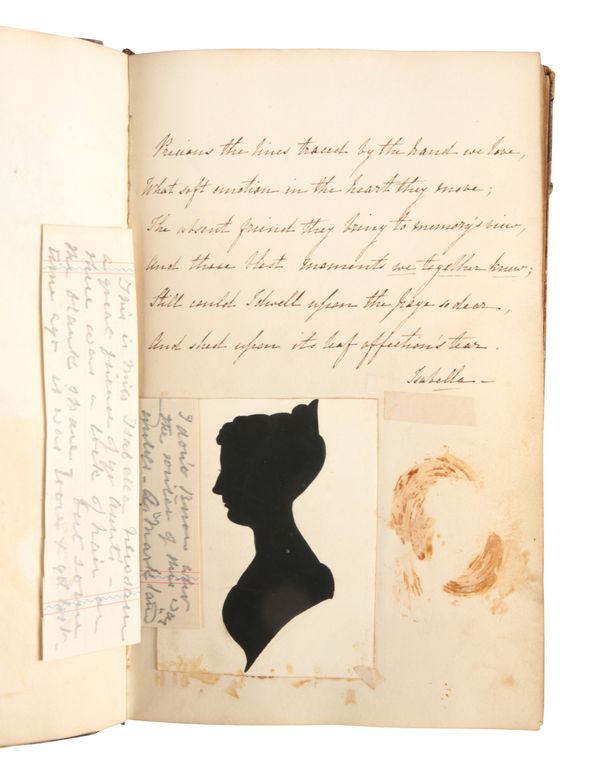 Precious the lines traced by the hand we love,
What soft emotion in the heart they move;
The absent friend they bring to memory's view,
And those blest moments we together knew;
Still could I dwell upon the page so dear,
And shed upon its leaf affection's tear.
Isabella -
This is Miss Isabella Newsam
a great friend of yr Aunts -
there was a lock of hair on
the blank space but some
time ago it was loose & got lost -
I don't know who
the writer of this was